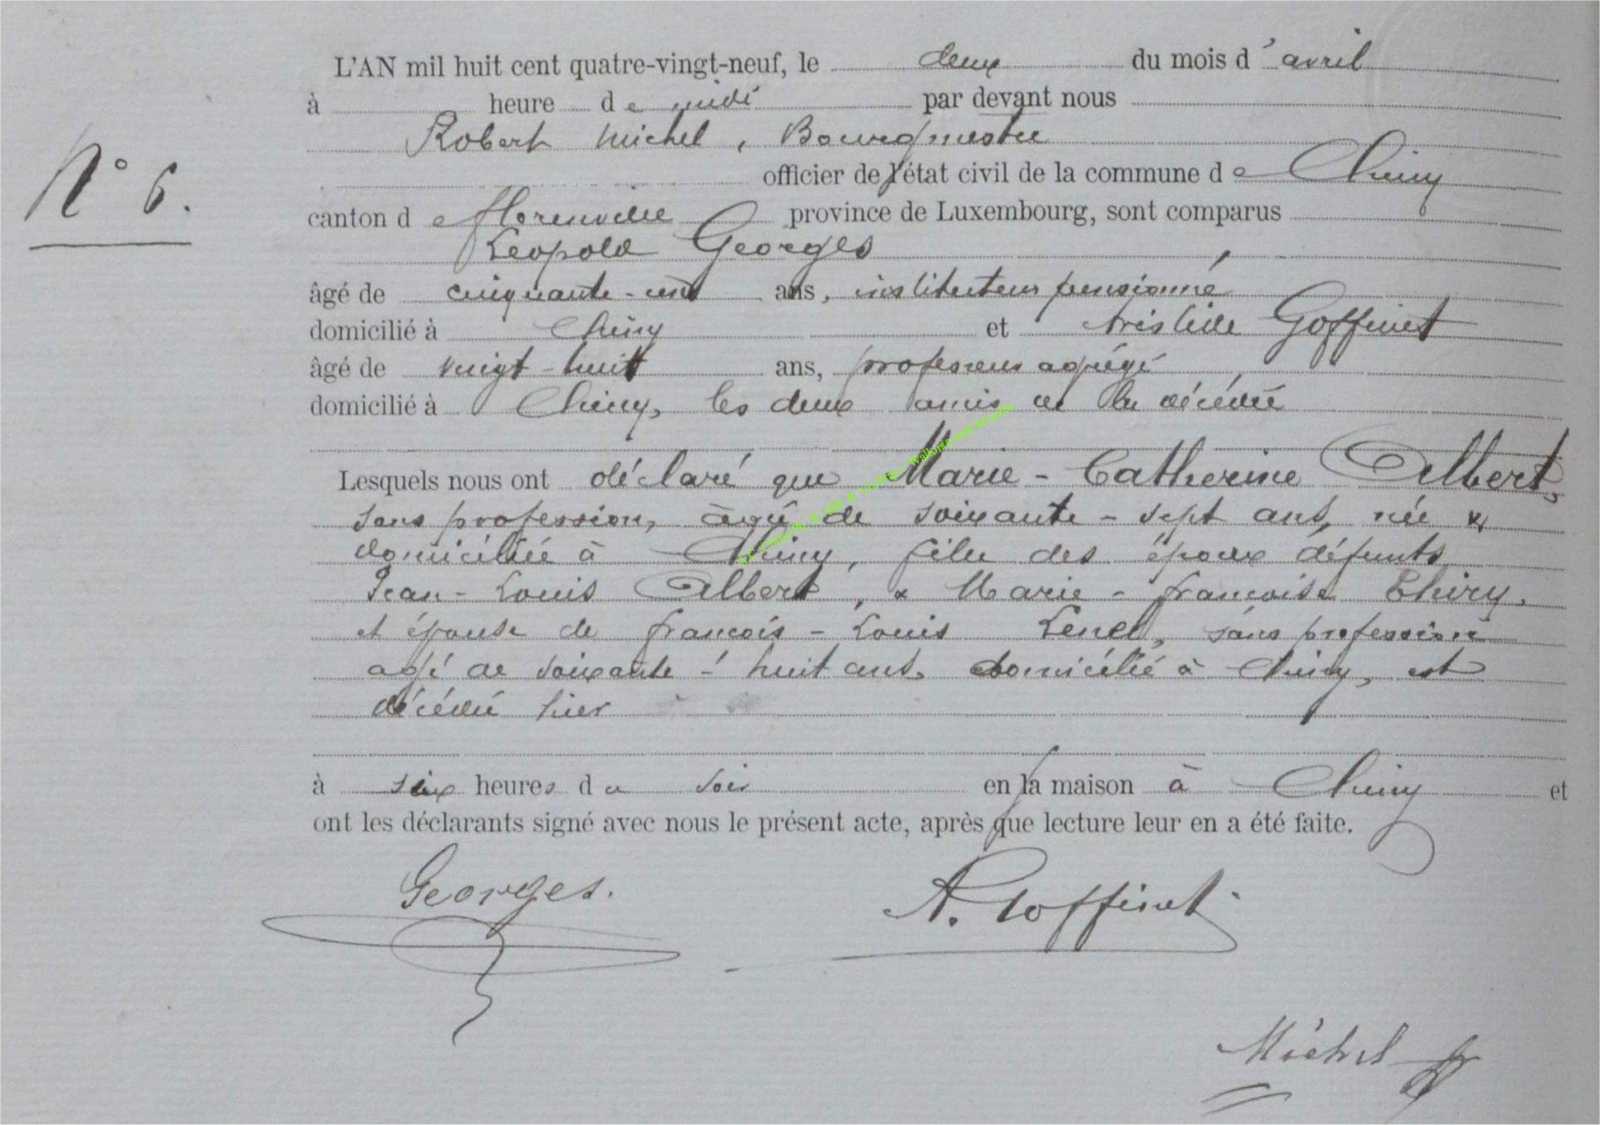 L'AN mil huit cent quatre-vingt-neuf, le deux du mois d'avril
à heure de midi par devant nous
Robert Michel, Bourgmestre
officier de l'état civil de la commune de Chiny
N° 6.
canton de Florenville province de Luxembourg, sont comparus
Léopold Georges
âgé de cinquante-un ans, instituteur pensionné
domicilié à Chiny et Aristide Goffinet
âgé de vingt-huit ans, professeur agrégé
domicilié à Chiny, les deux amis de la décédée
Lesquels nous ont déclaré que Marie-Catherine Albert,
sans profession, âgée de soixante-sept ans, née &
domiciliée à Chiny, fille des époux défunts
Jean-Louis Albert, & Marie-françoise Thiry,
et épouse de françois-Louis Lenel, sans profession
agé de soixante-huit ans, domicilié à Chiny, est
décédée hier
à six heures du soir en la maison à Chiny et
ont les déclarants signé avec nous le présent acte, après que lecture leur en a été faite.
Georges. A. Goffinet
Michel